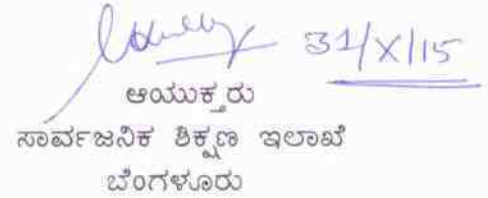 31/X/15
ಆಯುಕ್ತರು
ಸಾರ್ವಜನಿಕ ಶಿಕ್ಷಣ ಇಲಾಖೆ
ಬೆಂಗಳೂರು